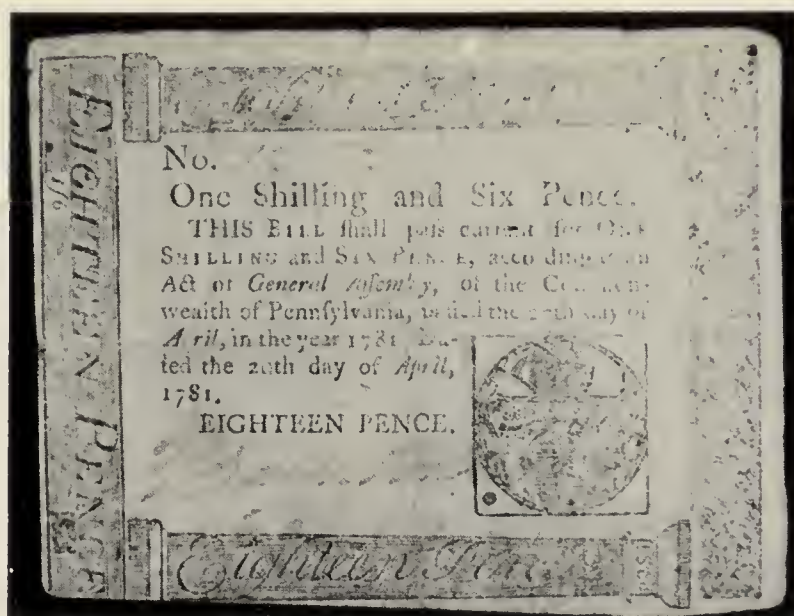 EIGHTEEN PENCE
No.
One Shilling and Six Pence.
THIS BILL ſhall paſs current for ONE
SHILLING and SIX PENCE, according to an
Act of General Aſſembly, of the Common-
wealth of Pennſylvania, paſſed the day of
April, in the year 1781. Da-
ted the 20th day of April,
1781.
EIGHTEEN PENCE.
Eighteen Pence